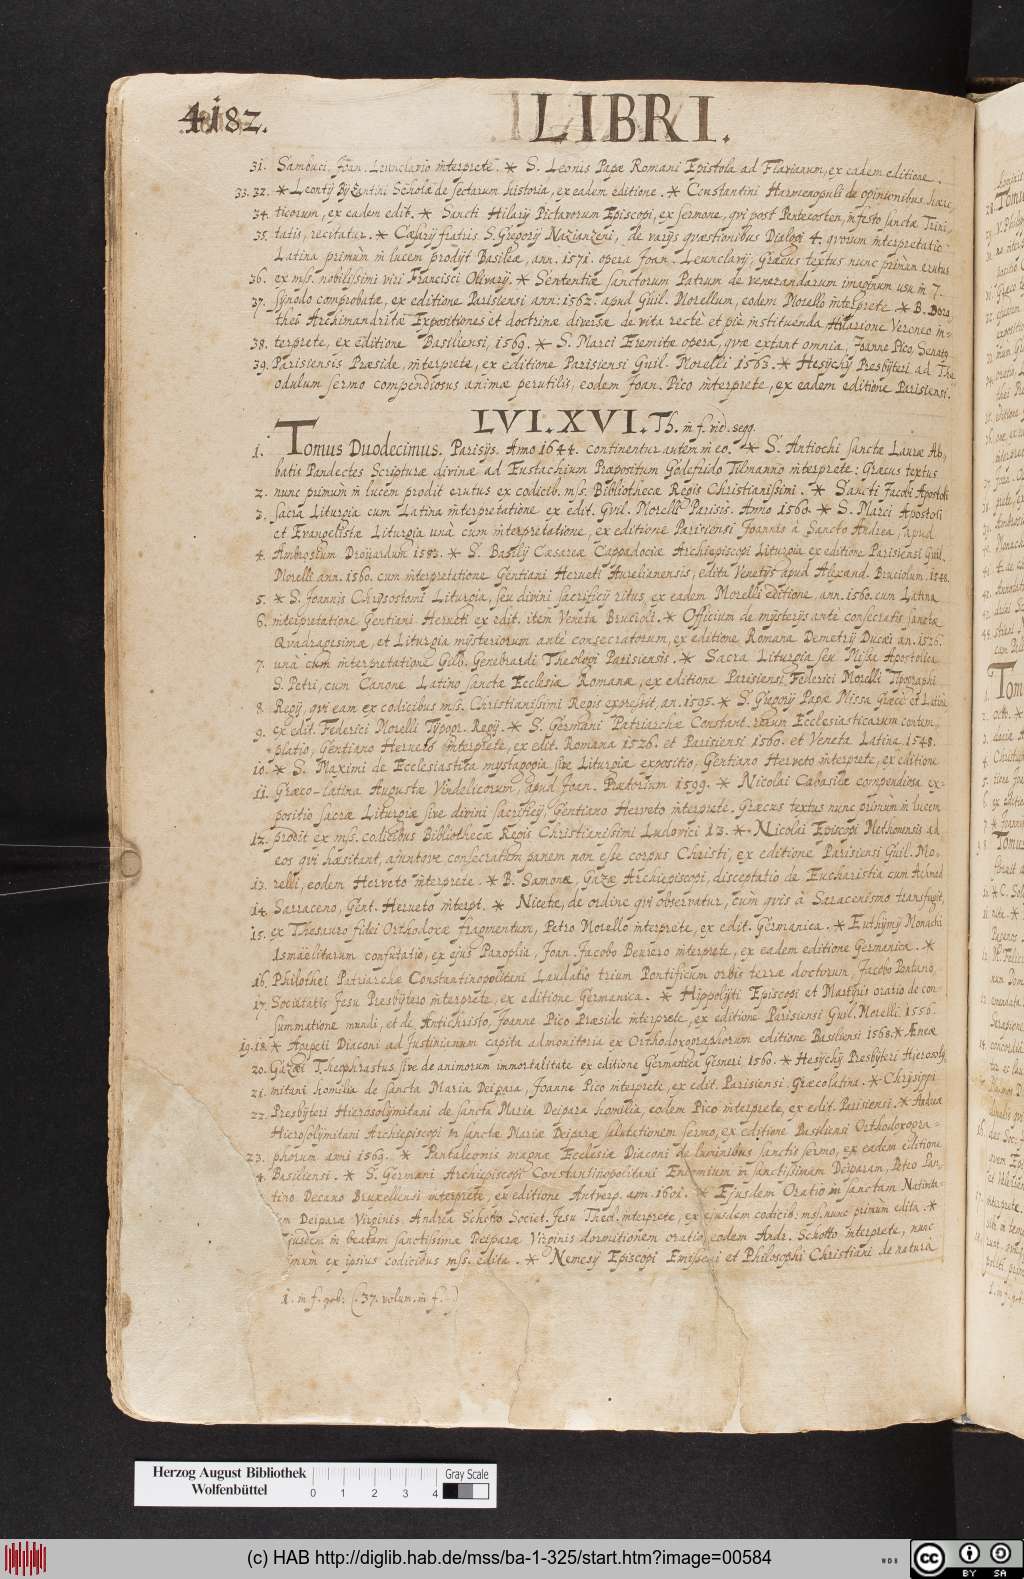 4182.
LIBRI.
31. Sambuci. Joan. Leunclavio interprete. * S. Leonis Papæ Romani Epistola ad Flavianum, ex eadem editione.
33. 32. * Leontÿ Byzantini Scholæ de sectarum historia, ex eadem editione. * Constantini Harmenopuli de opinionibus hære-
34. ticorum, ex eadem edit. * Sancti Hilarÿ Pictavorum Episcopi, ex sermone, qvi post Pentecosten, in festo sanctæ Trini,
35. tatis, recitatur. * Cæsarÿ fratris S. Gregorÿ Nazianzeni, de varÿs qvæstionibus Dialogi 4. qvorum interpretatio
Latina primùm in lucem prodÿt Basileæ, ann. 1571. opera Joan. Leunclavÿ; Græcus textus nunc primùm erutus
36. ex mss. nobilissimi viri Francisci Olivarÿ. * Sententiæ sanctorum Patrum de venerandarum imaginum usu in 7.
37. synodo comprobatæ, ex editione Parisiensi ann: 1562. apud Guil. Morellum, eodem Morello interprete. * B. Doro,
thei Archimandritæ Expositiones et doctrinæ diversæ de vita rectè et piè instituenda, Hilarione Veroneo in-
38. terprete, ex editione Basiliensi, 1569. * S. Marci Eremitæ opera, qvæ extant omnia, Joanne Pico, Senat9
39. Parisiensis Præside, interprete, ex editione Parisiensi Guil. Morelli 1563. * Hesychÿ Presbyteri ad The
odulum sermo compendiosus animæ perutilis, eodem Joan. Pico interprete, ex eadem editione Parisiensi.
LVI. XVI. Th. in f. vid. seqq.
1. Tomus Duodecimus. Parisÿs. Anno 1644. continentur autem in eo. * S. Antiochi sanctæ Lauræ Ab,
batis Pandectes Scripturæ divinæ ad Eustachium Præpositum Godefrido Tilmanno interprete: Græcus textus
2. nunc primùm in lucem prodit erutus ex codicib. mss. Bibliothecæ Regis Christianissimi. * Sancti Jacobi Apostoli
3. sacra Liturgia cum Latina interpretatione ex edit. Gvil. Morelli Parisis. Anno 1560. * S. Marci Apostoli
et Evangelistæ Liturgia unà cum interpretatione, ex editione Parisiensi Joannis à Sancto Andrea, apud
4. Ambrosium Drouardum 1583. * S. Basilÿ Cæsareæ Cappadociæ Archiepiscopi Liturgia ex editione Parisiensi Guil.
Morelli ann. 1560. cum interpretatione Gentiani Herveti Aurelianensis, edita Venetÿs apud Alexand. Bruciolum. 1548.
5. * S. Joannis Chrysostomi Liturgia, seu divini sacrificÿ ritus, ex eadem Morelli editione, ann. 1560. cum Latina
6. interpretatione Gentiani Herveti ex edit. item Veneta Brucioli. * Officium de mysterÿs antè consecratis sanctæ
Qvadragesimæ, et Liturgia mysteriorum antè consecratorum, ex editione Romana Demetrÿ Ducæ an. 1526.
7. unà cum interpretatione Gilb. Genebrardi Theologi Parisiensis. * Sacra Liturgia seu Missa Apostolica
S. Petri, cum Canone Latino sanctæ Ecclesiæ Romanæ, ex editione Parisiensi Federici Morelli Typographi
8. Regÿ, qvi eam ex codicibus mss. Christianissimi Regis expressit, an. 1595. * S. Gregorÿ Papæ Missa Græcè et Latinè
9. ex edit. Federici Morelli Typogr. Regÿ. * S. Germani Patriarchæ Constant. rerum Ecclesiasticarum contem,
platio, Gentiano Herveto interprete, ex edit. Romana 1526. et Parisiensi 1560. et Veneta Latina 1548.
10. * S. Maximi de Ecclesiastica mystagogia sive Liturgiæ expositio, Gentiano Herveto interprete, ex editione
11. Græco-latina Augustæ Vindelicorum, apud Joan. Prætorium 1599. * Nicolai Cabasilæ compendiosa ex-
positio sacræ Liturgiæ sive divini sacrificÿ, Gentiano Herveto interprete. Græcus textus nunc primùm in lucem
12. prodit ex mss. codicibus Bibliothecæ Regis Christianissimi Ludovici 13. * Nicolai Episcopi Methonensis ad
eos qvi hæsitant, ajuntqve consecratum panem non esse corpus Christi, ex editione Parisiensi Guil. Mo-
13. relli, eodem Herveto interprete. * B. Samonæ, Gazæ Archiepiscopi, disceptatio de Eucharistia cum Achmed
14. Sarraceno, Gent. Herveto interpt. * Nicetæ, de ordine qvi observatur, cùm qvis à Saracenismo transfugit,
15. ex Thesauro fidei Orthodoxæ fragmentum, Petro Morello interprete, ex edit. Germanica. * Euthymÿ Monachi
Ismaelitarum confutatio, ex ejus Panoplia, Joan. Jacobo Beurero interprete, ex eadem editione Germanica. *
16. Philothei Patriarchæ Constantinopolitani Laudatio trium Pontificum orbis terræ doctorum, Jacobo Pontano,
17. Societatis Jesu Presbytero interprete, ex editione Germanica. * Hippolyti Episcopi et Martyris oratio de con-
summatione mundi, et de Antichristo, Joanne Pico Præside interprete, ex editione Parisiensi Guil. Morelli 1556.
19. 18. * Agapeti Diaconi ad Justinianum capita admonitoria ex Orthodoxographorum editione Basiliensi 1568. * Æneæ
20. Gazæi Theophrastus, sive de animorum immortalitate ex editione Germanica Gesneri 1560. * Hesychÿ Presbyteri Hierosoly
21. mitani homilia de sancta Maria Deipara, Joanne Pico interprete, ex edit. Parisiensi. Græcolatina. * Chrysippi
22. Presbyteri Hierosolymitani de sancta Maria Deipara homilia, eodem Pico interprete, ex edit. Parisiensi. * Andreæ
Hierosolymitani Archiepiscopi in sanctæ Mariæ Deiparæ salutationem sermo, ex editione Basiliensi Orthodoxogra-
23. phorum anni 1569. * Pantaleonis magnæ Ecclesiæ Diaconi de luminibus sanctis sermo, ex eadem editione
4. Basiliensi. * S. Germani Archiepiscopi Constantinopolitani Encomium in sanctissimam Deiparam, Petro Pan,
tino Decano Bruxellensi interprete, ex editione Antverp. ann. 1601. * Ejusdem Oratio in sanctam Nativita-
em Deiparæ Virginis. Andrea Schotto Societ. Jesu Theol. interprete, ex ejusdem codicib: mss. nunc primùm edita. *
jusdem in beatam sanctissimæ Deiparæ Virginis dormitionem oratio, eodem Andr. Schotto interprete, nunc
imùm ex ipsius codicibus mss. edita. * Nemesÿ Episcopi Emisseni et Philosophi Christiani de natura
1. in f. geb. (. 37. volum. in f. .)
Herzog August Bibliothek
Wolfenbüttel
0 1 2 3 4
Gray Scale
(c) HAB http://diglib.hab.de/mss/ba-1-325/start.htm?image=00584
WDB
BY SA